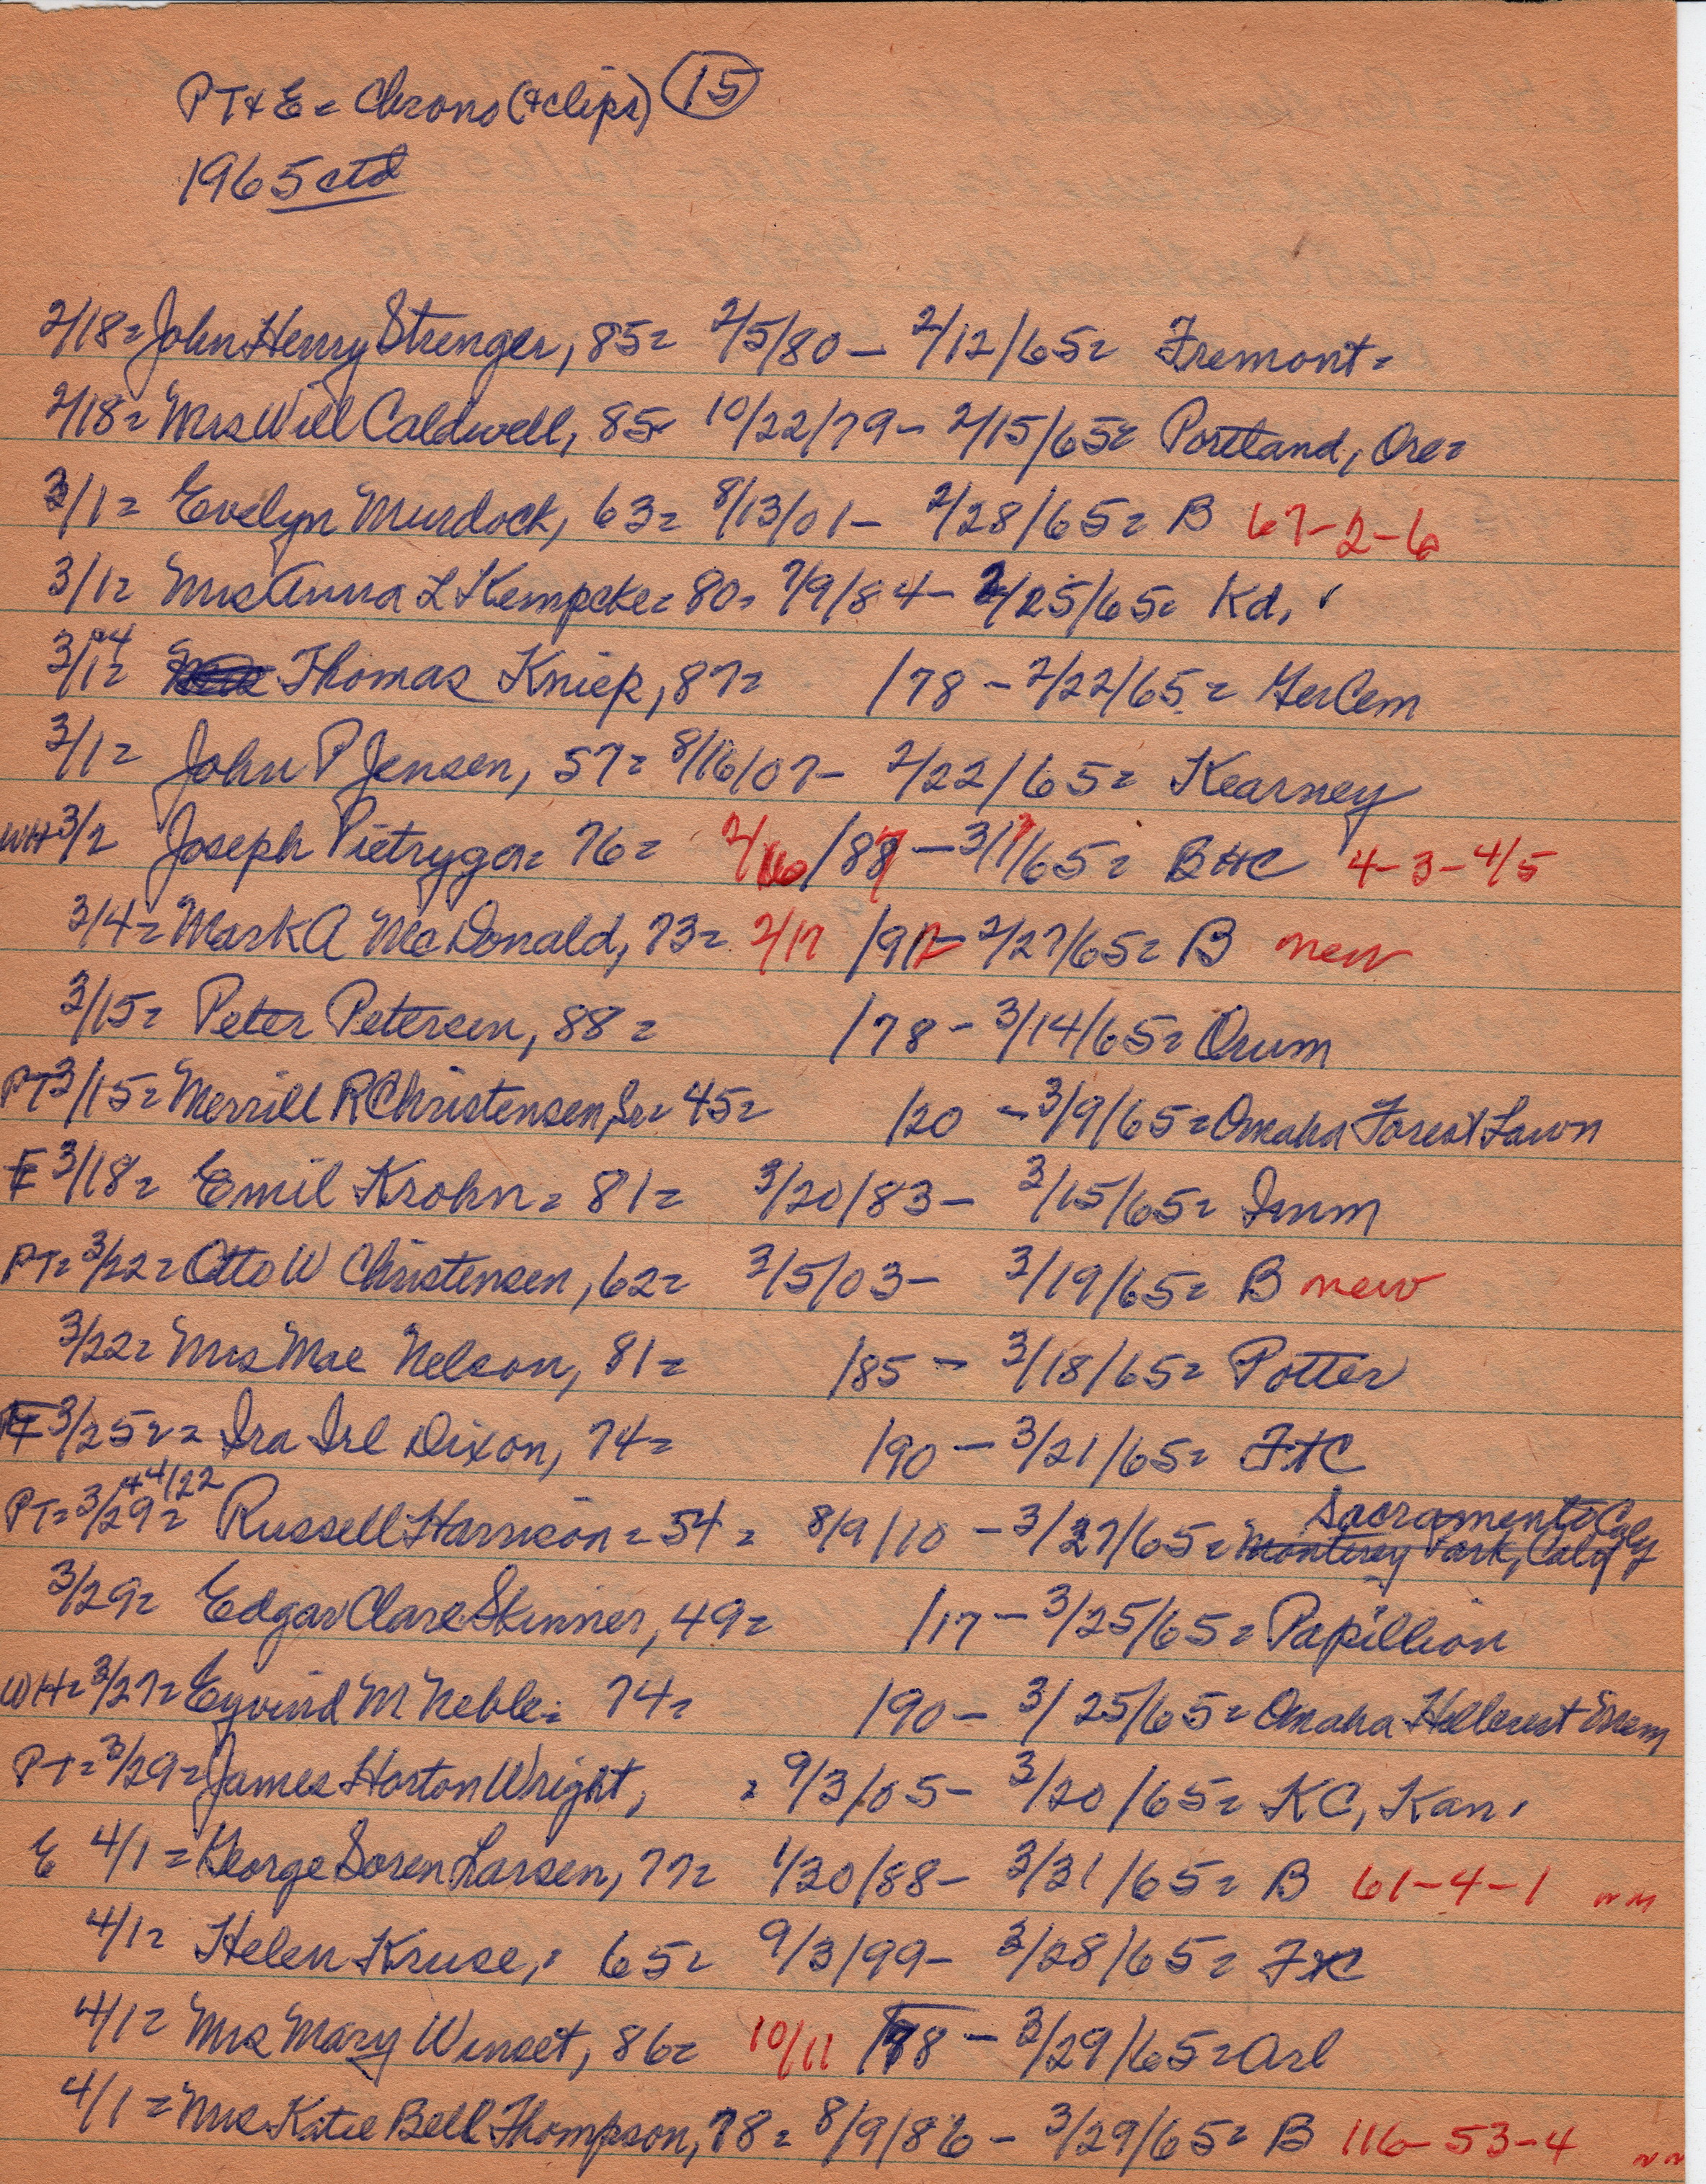 PT & E = Chrono (+clips) 15
1965 ctd
2/18 = John Henry Strenger, 85 = 2/5/80 - 2/12/65 = Fremont =
2/18 = Mrs Will Caldwell, 85 = 10/22/79 - 2/15/65 = Portland, Ore =
3/1 = Evelyn Murdock, 63 = 8/13/01 - 2/28/65 = B 67-2-6
3/1 = Mrs Anna L Kempcke = 80 = 7/9/84 - 2/25/65 = Kd,
3/1 = +4 Thomas Kniep, 87 = /78 - 2/22/65 = GerCem
3/1 = John P Jensen, 57 = 8/16/07 - 2/22/65 = Kearney
WH 3/2 Joseph Pietryga = 76 = 2/16/88 - 3/1/65 = BHC 4-3-4/5
3/4 = Mark A McDonald, 73 = 2/17 /92 - 2/27/65 = B new
3/15 = Peter Petersen, 88 = /78 - 3/14/65 = Orum
PT 3/15 = Merrill R Christensen, Sr = 45 = /20 - 3/9/65 = Omaha Forest Lawn
E 3/18 = Emil Krohn = 81 = 3/20/83 - 3/15/65 = Imm
PT = 3/22 = Otto W Christensen, 62 = 3/5/03 - 3/19/65 = B new
3/22 = Mrs Mae Nelson, 81 = /85 - 3/18/65 = Potter
E 3/25 = = Ira Irl Dixon, 74 = /90 - 3/21/65 = FtC
PT = 3/29 = +4/22 Russell Harrison = 54 = 8/9/10 - 3/27/65 = Monterey Park, Calif Sacramento Calif
3/29 = Edgar Clare Skinner, 49 = /17 - 3/25/65 = Papillion
WH = 3/27 = Eyvind M Neble = 74 = /90 - 3/25/65 = Omaha Hillcrest
PT = 3/29 = James Horton Wright, = 9/3/05 - 3/20/65 = KC, Kan.
E 4/1 = George Soren Larsen, 77 = 1/30/88 - 3/31/65 = B 61-4-1 nm
4/1 = Helen Kruse, = 65 = 9/3/99 - 3/28/65 = FtC
4/1 = Mrs Mary Winset, 86 = 10/11 /78 - 3/29/65 = Arl
4/1 = Mrs Katie Bell Thompson, 78 = 8/9/86 - 3/29/65 = B 116-53-4 nm